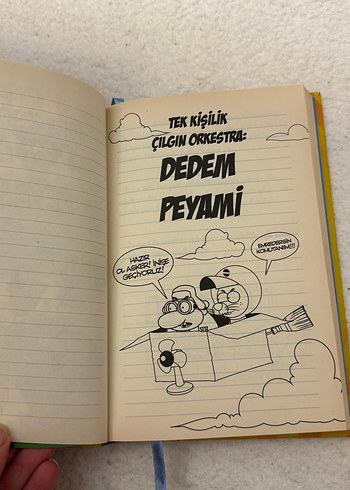 TEK KİŞİLİK
ÇILGIN ORKESTRA:
DEDEM
PEYAMİ
HAZIR
OL ASKER! İNİŞE
GEÇİYORUZ!
EMREDERSİN
KOMUTANIM!!!